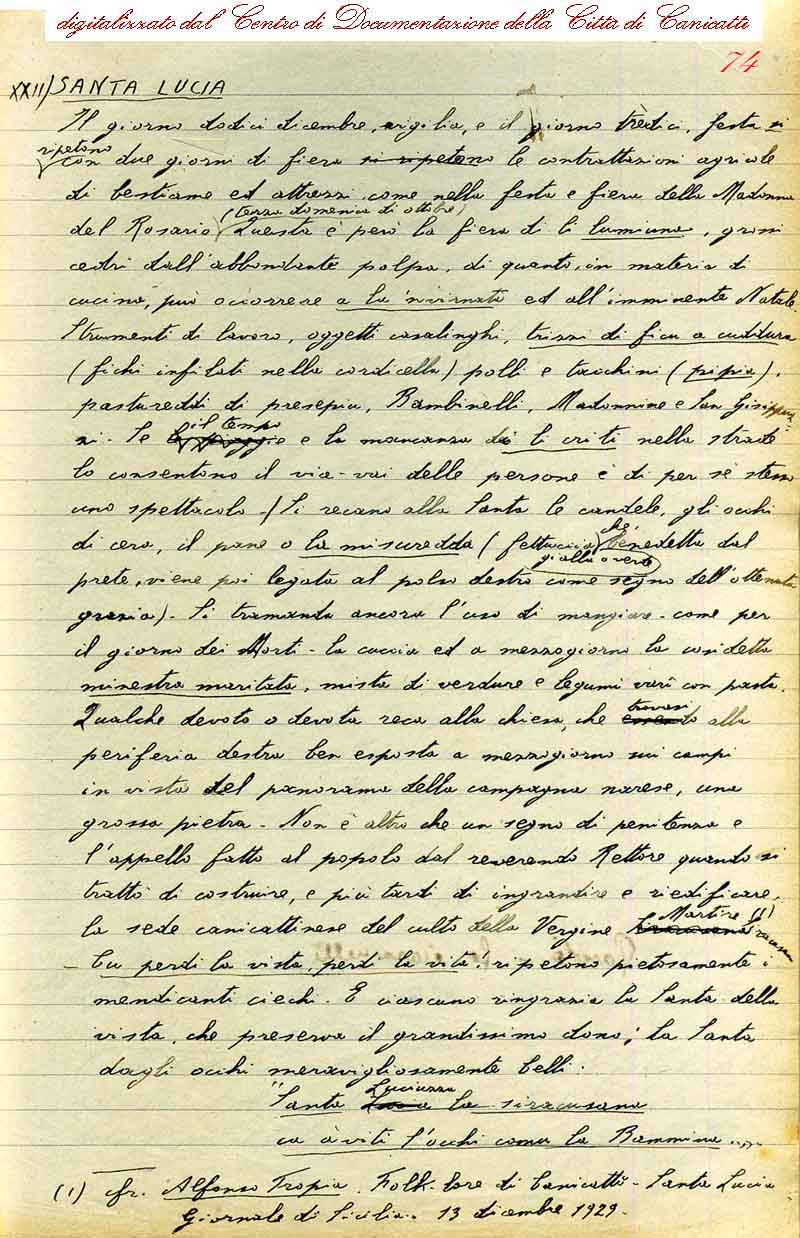 digitalizzato dal Centro di Documentazione della Città di Canicattì
74
XXII/ SANTA LUCIA
Il giorno dodici dicembre, vigilia, e il giorno tredici, festa si
ripetono
con due giorni di fiera si ripetono le contrattazioni agricole
di bestiame ed attrezzi come nella festa e fiera della Madonna
(terza domenica di ottobre)
del Rosario. Questa è però la fiera di li lumiuna, grossi
cedri dall'abbondante polpa, di quanto, in materia di
cucina, può occorrere a la 'nvirnata ed all'imminente Natale.
Strumenti di lavoro, oggetti casalinghi, trizzi di ficu a cuditura
(fichi infilati nella cordicella) polli e tacchini (pipia),
pastureddi di presepia, Bambinelli, Madonnine e San Gisippuz-
il tempo
zi. Se le piogge e la mancanza di li criti nelle strade
lo consentono il via-vai delle persone è di per sé stesso
uno spettacolo -/ Si recano alla Santa le candele, gli occhi
che
di cera, il pane o la misuredda (fettuccia benedetta dal
gialla o verde
prete, viene poi legata al polso destro come segno dell'ottenuta
grazia). Si tramanda ancora l'uso di mangiare - come per
il giorno dei Morti - la cuccia ed a mezzogiorno la cosidetta
minestra maritata, mista di verdure e legumi varî con pasta.
trovasi
Qualche devoto o devota reca alla chiesa, che essendo alla
periferia destra ben esposta a mezzogiorno sui campi
in vista del panorama della campagna narese, una
grossa pietra - Non è altro che un segno di penitenza e
l'appello fatto al popolo dal reverendo Rettore quando si
trattò di costruire, e più tardi di ingrandire e riedificare,
Martire (1)
la sede canicattinese del culto della Vergine siracusana siracusana
- Cu perdi la vista, perdi la vita! ripetono pietosamente i
mendicanti ciechi. E ciascuno ringrazia la Santa della
vista, che preserva il grandissimo dono; la Santa
dagli occhi meravigliosamente belli:
Luciuzza
"Santa Lucia la siracusana
ca àviti l'occhi comu la Bammina....
(1) cfr. Alfonso Tropia. Folk-lore di Canicattì - Santa Lucia
Giornale di Sicilia. 13 dicembre 1929.